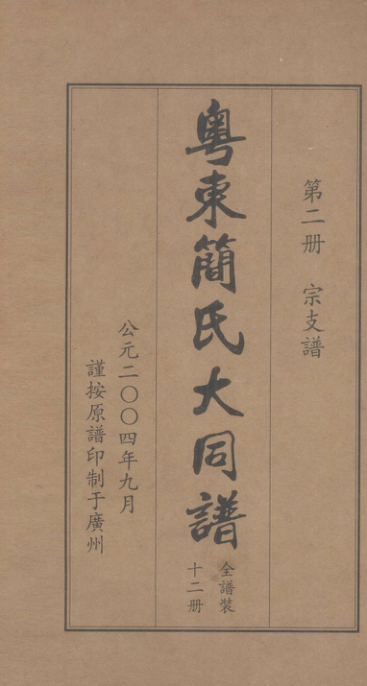 第二册　宗支譜
粤東簡氏大同譜
全譜裝
十二册
公元二〇〇四年九月
謹按原譜印制于廣州